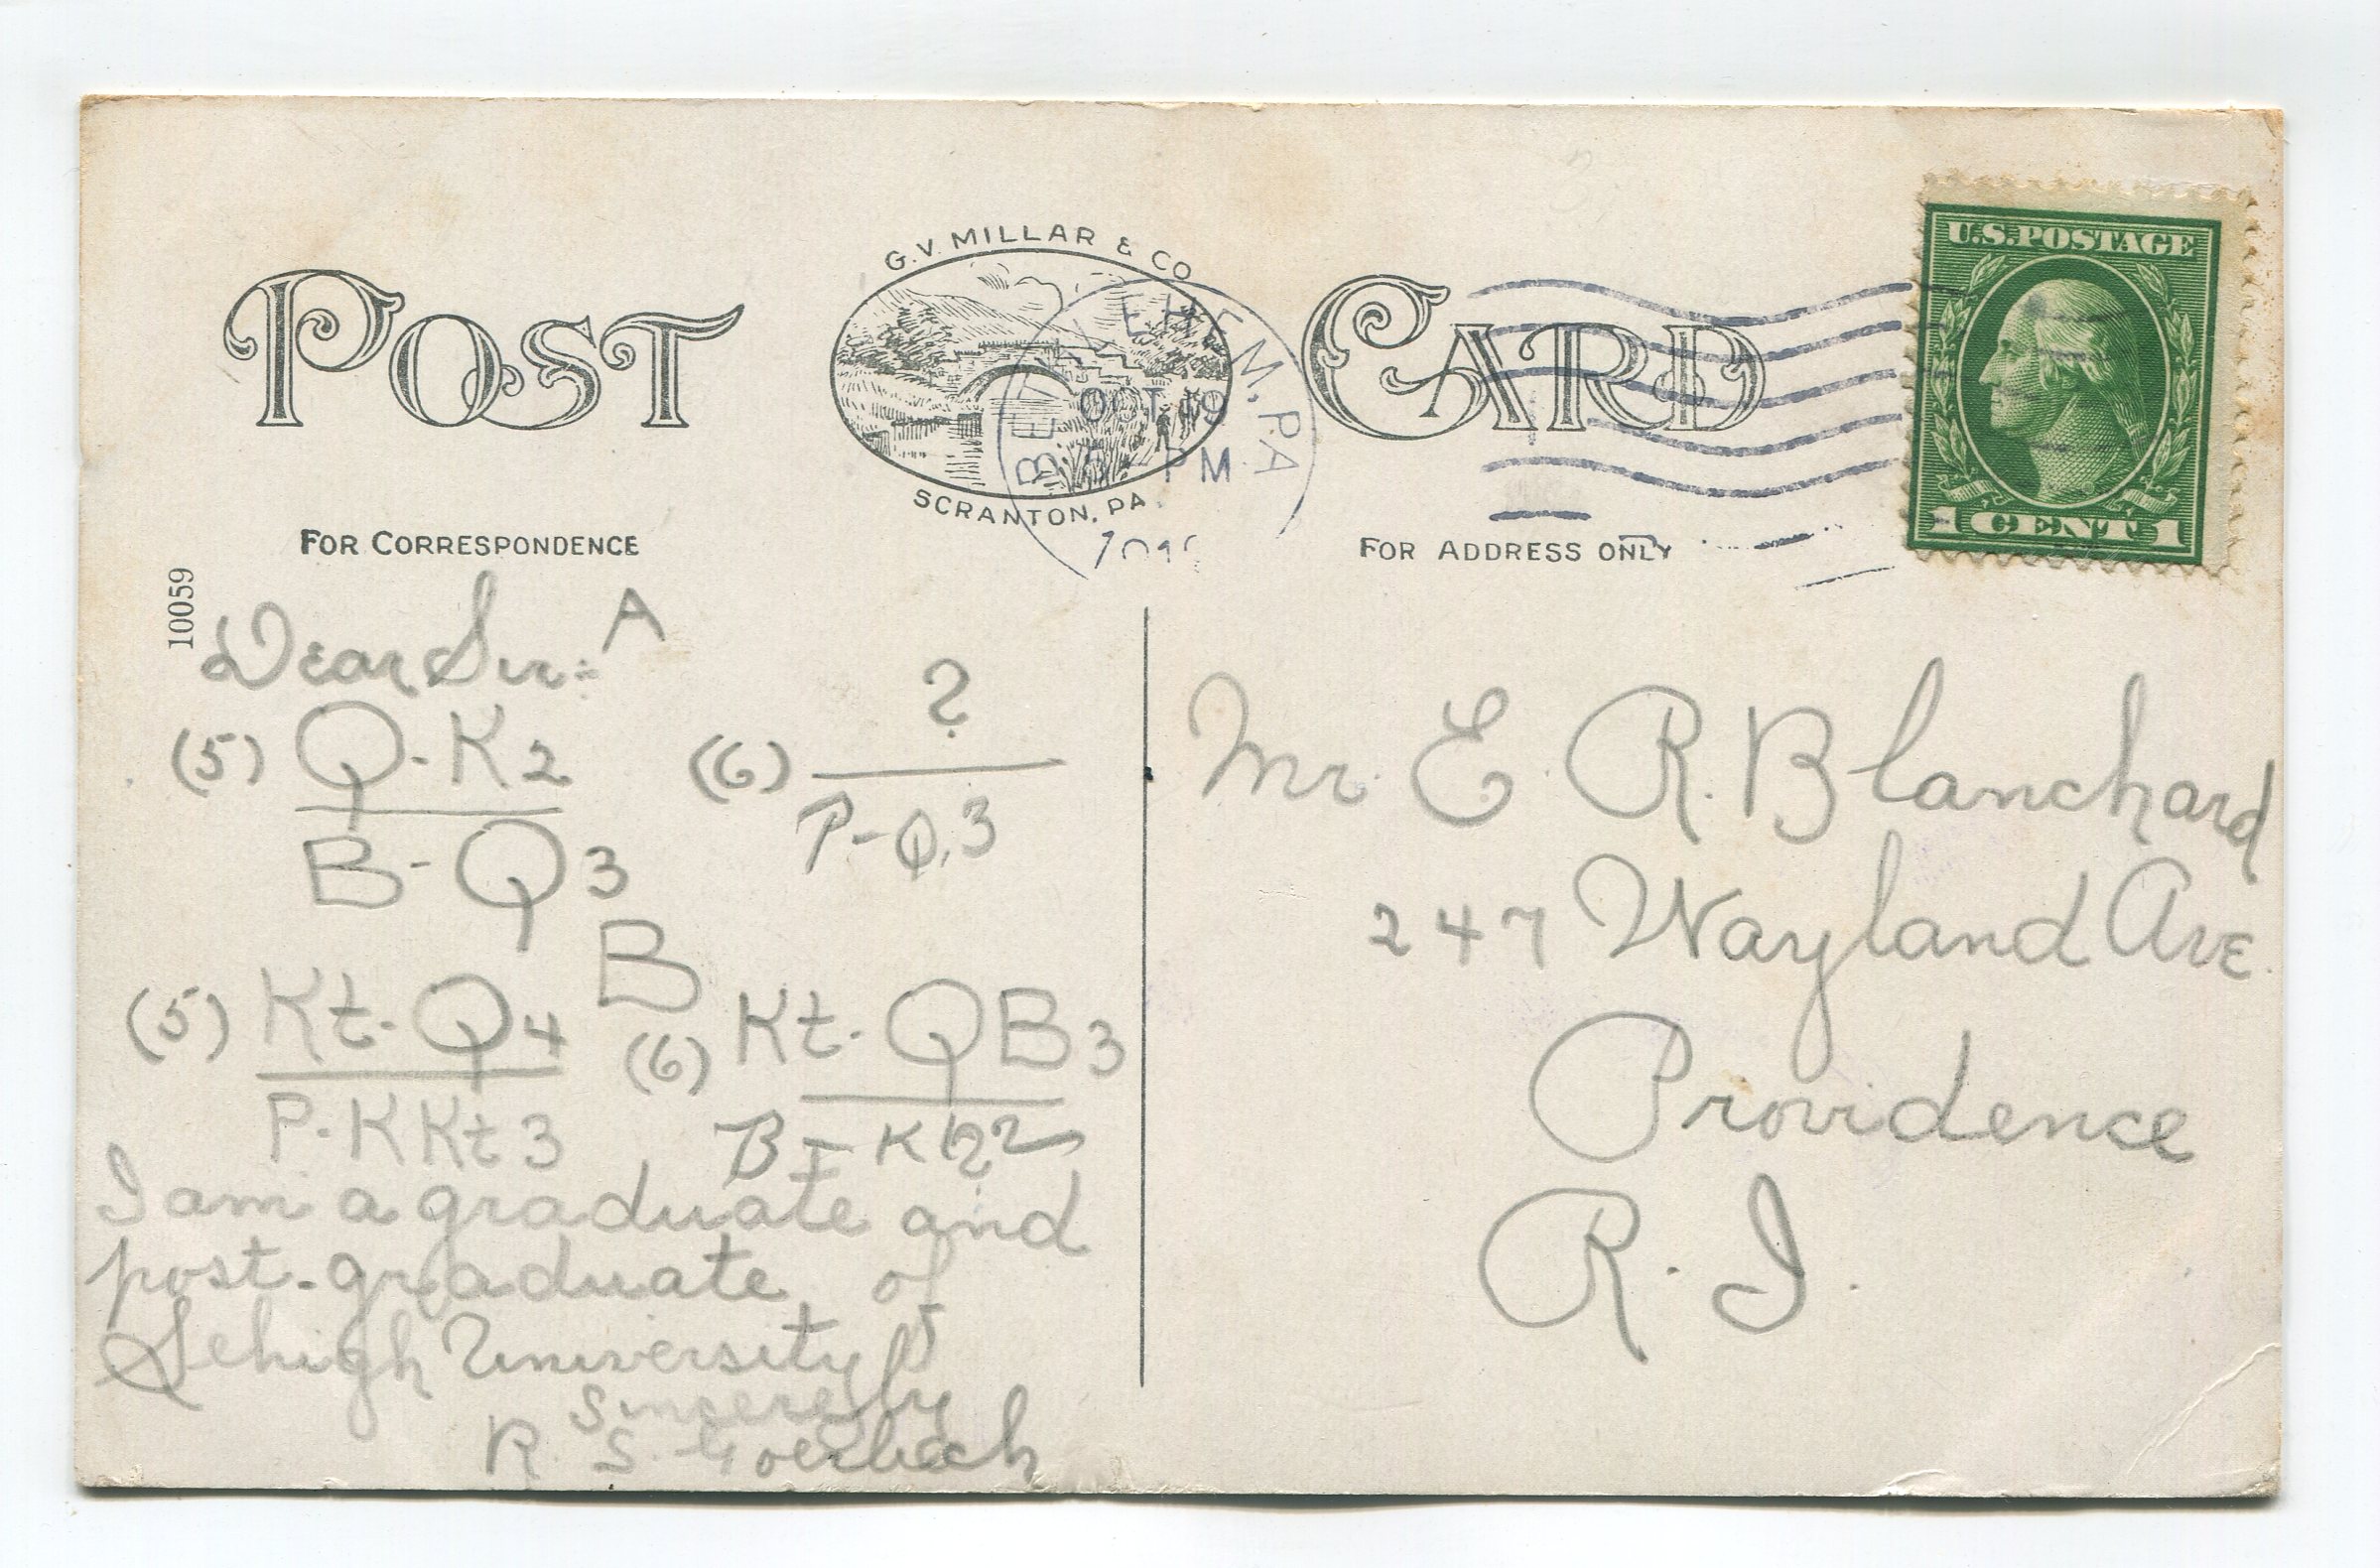 POST CARD
G.V. MILLAR & CO
SCRANTON, PA.
BETHLEHEM, PA
OCT 19
PM
U.S. POSTAGE
1 CENT 1
FOR CORRESPONDENCE
FOR ADDRESS ONLY
10059
Dear Sir:- A
(5) Q-K2
B-Q3
(6) ?
P-Q3
B
(5) Kt-Q4
P-KKt3
(6) Kt-QB3
B-Kt2
I am a graduate and
post-graduate of
Lehigh University
Sincerely
R. S.
Mr. E. R. Blanchard
247 Wayland Ave.
Providence
R. I.